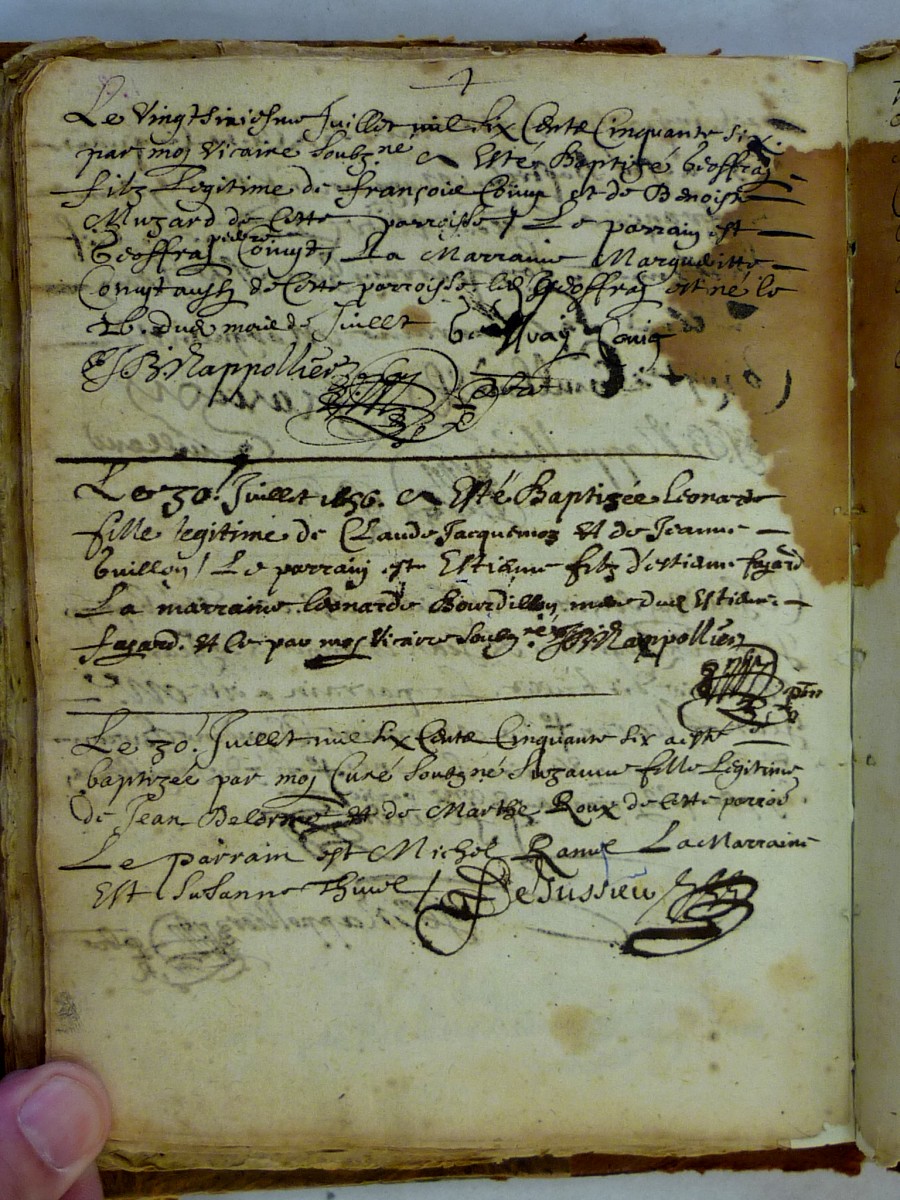 Le vingtsixiesme Juillet mil six Centz Cinquante six
par moy Vicaire soubz.né a Esté Baptizé Geoffray
filz Legitime de françois Couyt et de Benoiste
Muzard de Cette parroisse / Le parrain est
Geoffray Couyt, La Marraine Margueritte
Couyt aussy de Cette parroisse led Geoffray est né le
26. dud mois de Juillet
JB Rappollier
Le 30. Juillet 1656. a Esté Baptizée Leonarde
fille legitime de Claude Jacquemoz et de Jeanne
Guillon / Le parrain est Estienne filz d'estienne fayard
La marraine Leonarde Bourdillon dud Estienne
fayard. et ce par moy Vicaire soubz.né JB Rappollier
Le 30. Juillet mil six Centz Cinquante six a esté
baptizée par moy Curé soubzné Suzanne fille Legitime
de Jean Delorme et de Marthe Roux de Cette parroisse
Le parrain est Michel Ranuel La Marraine
Est Susanne Thivel / Dejussieu